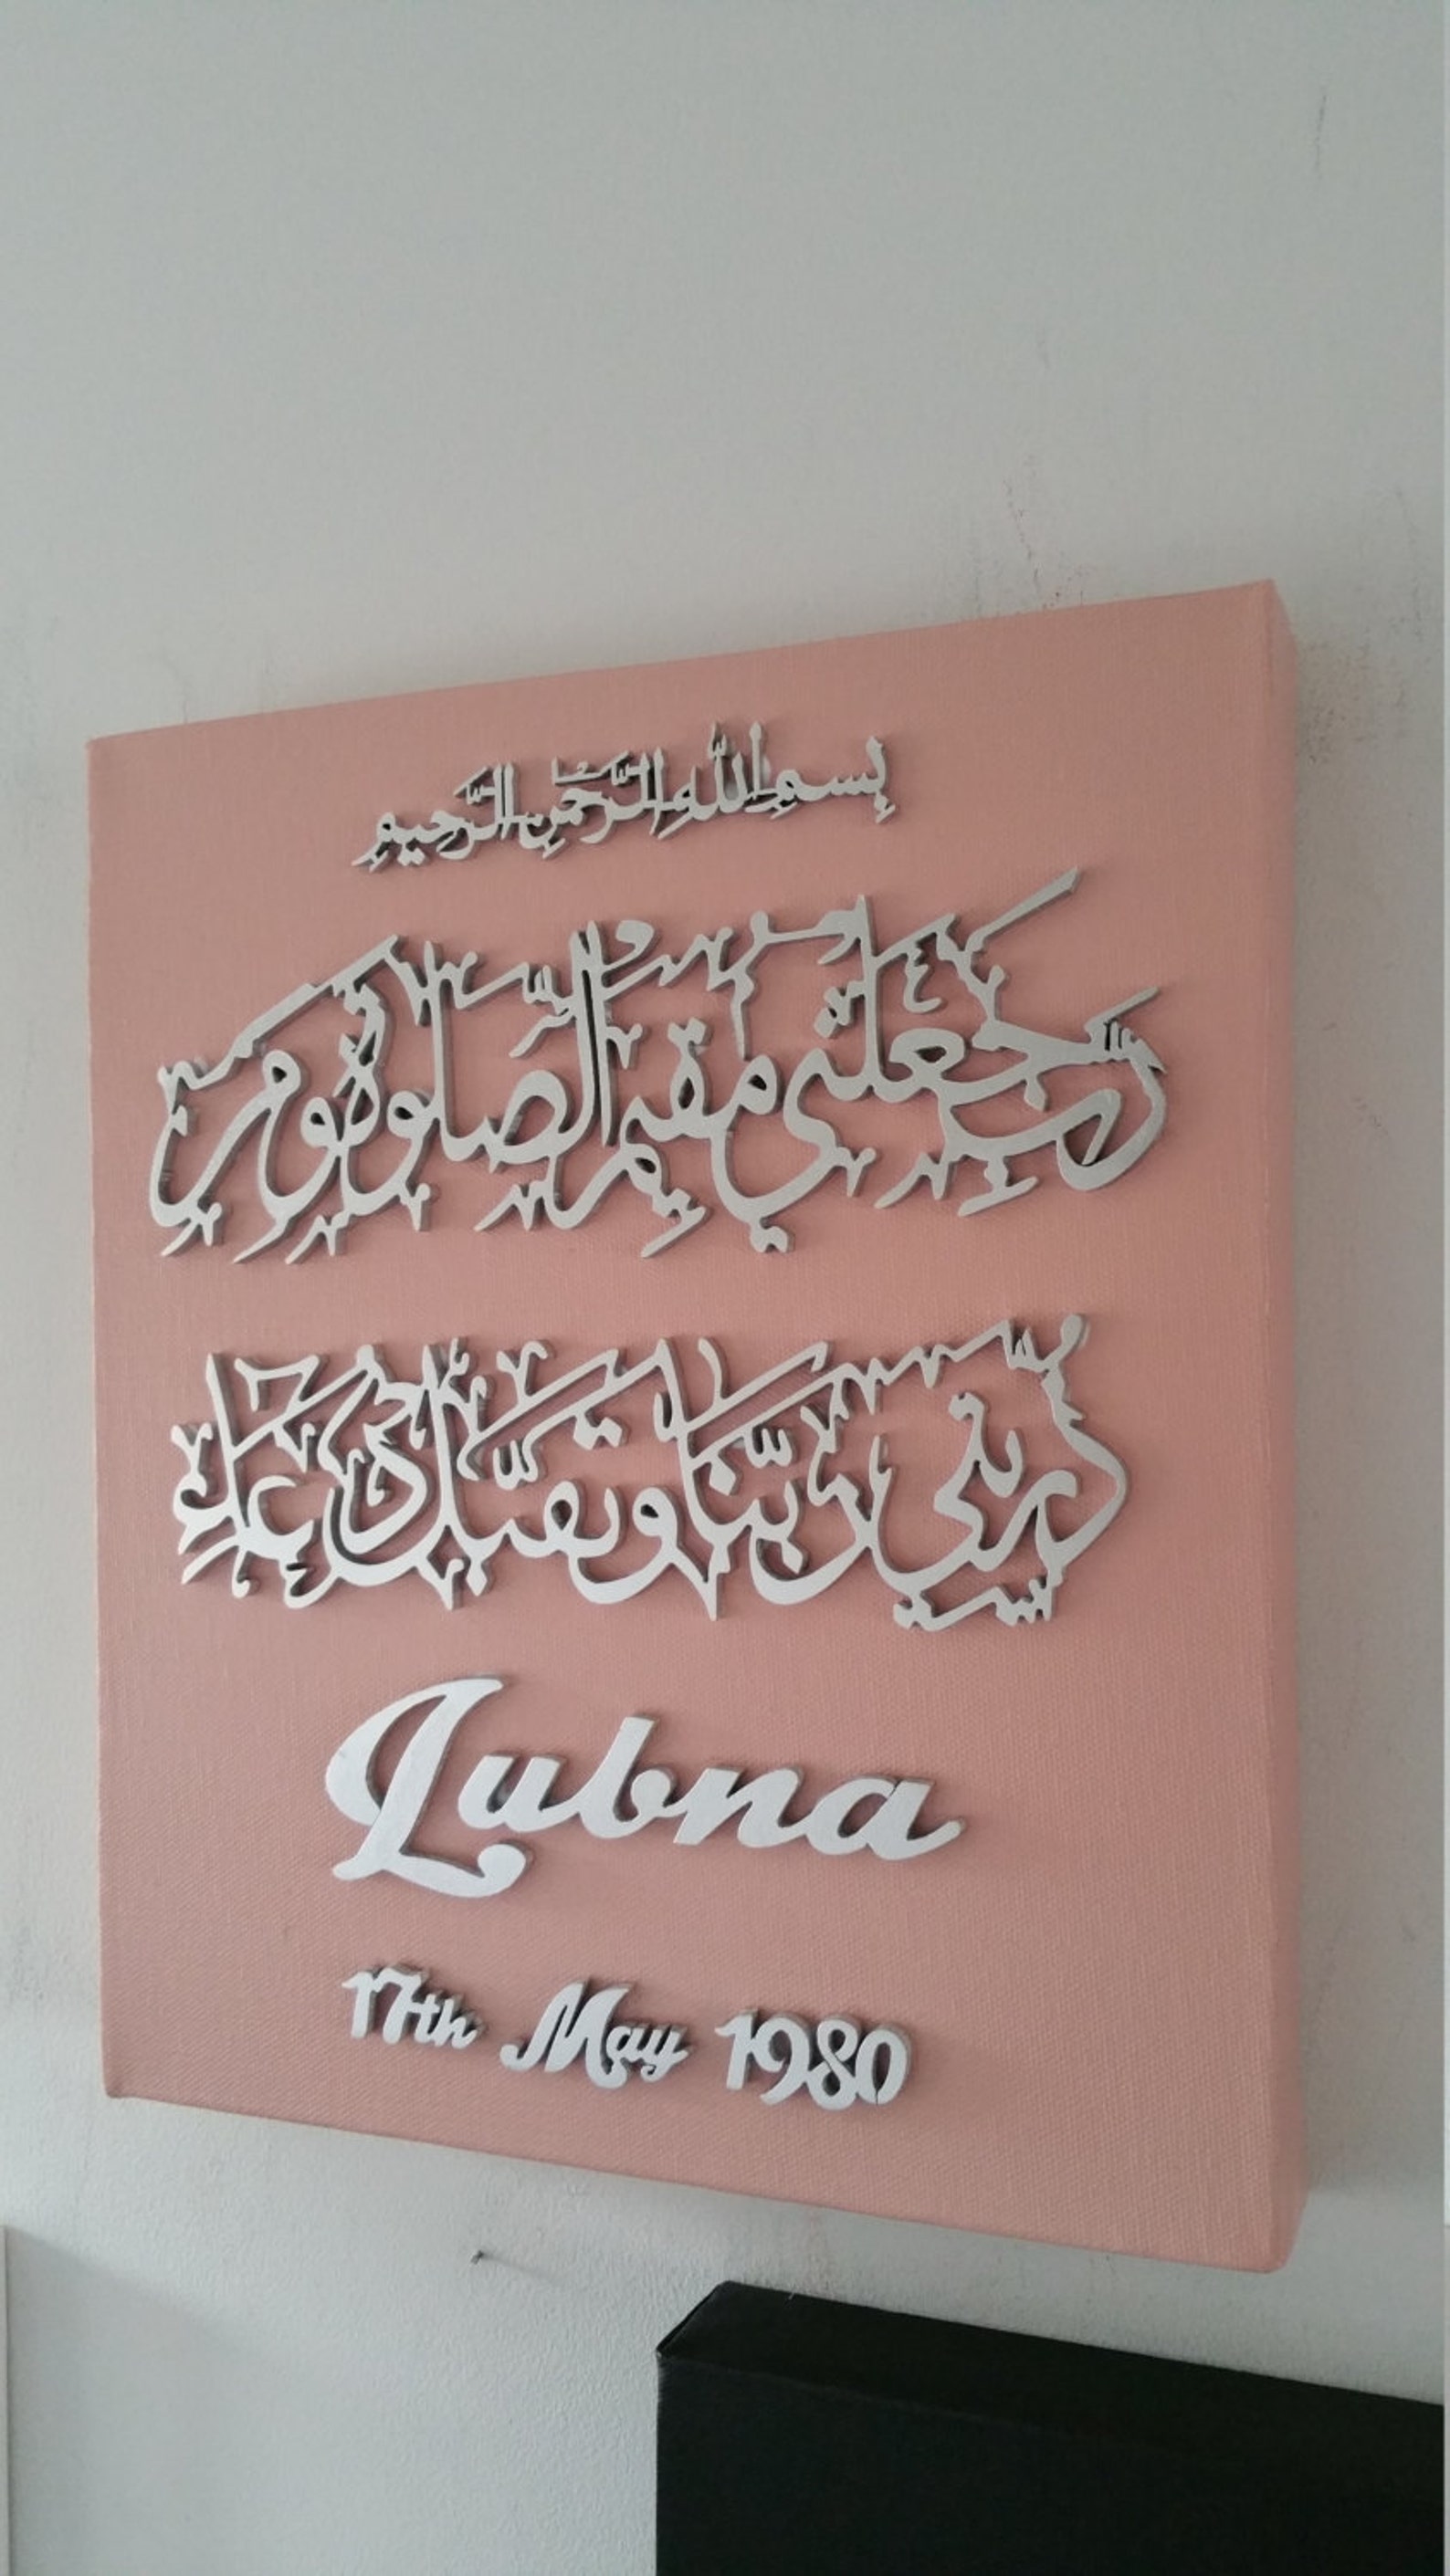 بِسمِ اللهِ الرَّحمٰنِ الرَّحيمِ
رَبِّ اجْعَلْنِي مُقِيمَ الصَّلوٰةِ وَمِنْ
ذُرِّيَّتِي رَبَّنَا وَتَقَبَّلْ دُعَاءِ
Lubna
17th May 1980